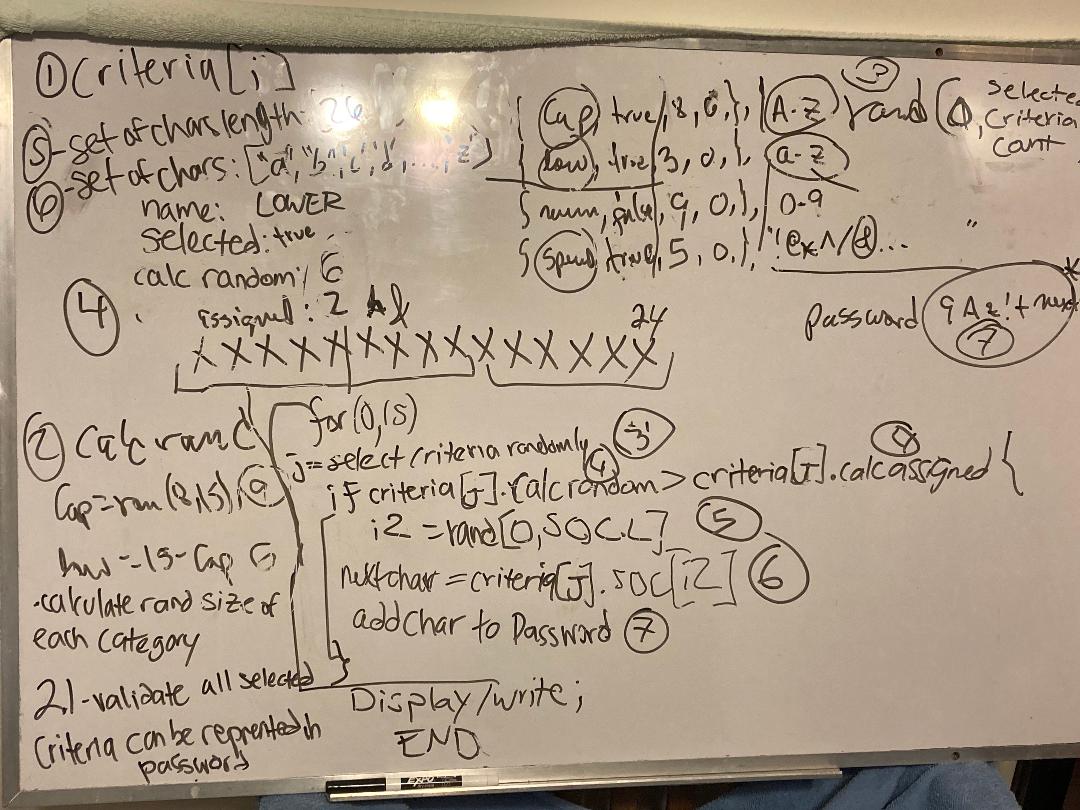 ① Criteria[i]
⑤-set of chars length: 26
⑥-set of chars: ["a","b","c","d",....,"z"]
name: LOWER
selected: true
calc random: 6
assigned: 2
{ Cap, true, 8, 0, }, | A-Z
{ low, true, 3, 0, }, a-z
{ num, false, 9, 0, }, 0-9
true, 5, 0, },
③
rand (0, selected criteria count
password 9Az!+
⑦
④
24
X X X X X X X X X X X X X X
② Calc rand
Cap = ran(8,15); 9
low = 15-Cap 6
.calculate rand size of
each category
2.1-validate all selected
Criteria can be reprented in
password
for(0,15)
j = select criteria randomly ③
④ ④
if criteria[J].calcrandom > criteria[J].calcassigned {
i2 = rand[0,SOC.L] ⑤
nextchar = criteria[J].soc[i2] ⑥
add char to Password ⑦
}
Display/write;
END
EXPO